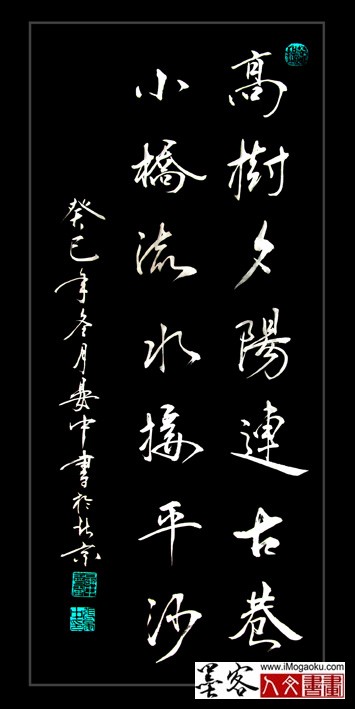 高樹夕陽連古巷
小橋流水接平沙
癸巳年冬月中書於北京
墨客
www.iMogaoku.com
人文書畫